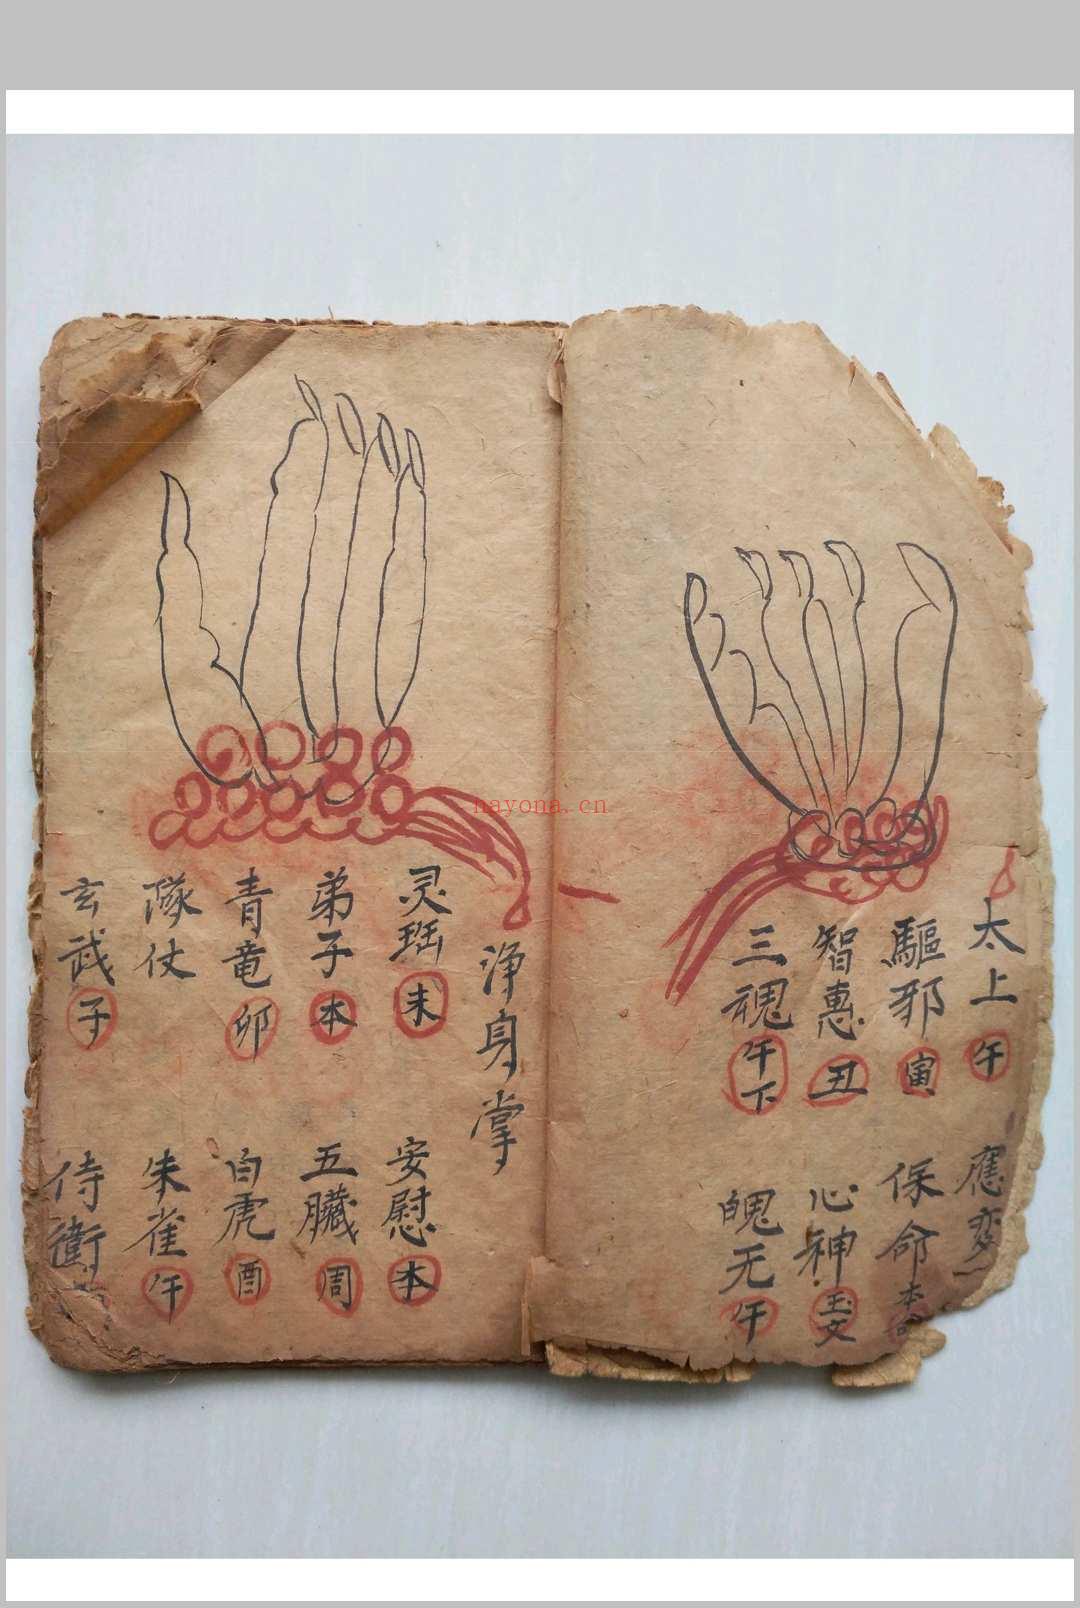 太上午
應变
驅邪寅
保命本
智惠丑
心神玉文
三魂午下
魄无午
净身掌
灵珤未
安慰本
弟子本
五臟周
青竜卯
白虎酉
隊仗
朱雀午
玄武子
侍衛
nayona.cn